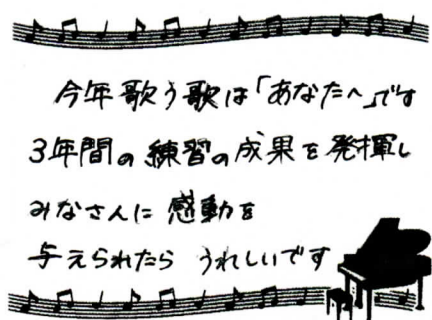 今年歌う歌は「あなたへ」です
3年間の練習の成果を発揮し
みなさんに感動を
与えられたら うれしいです